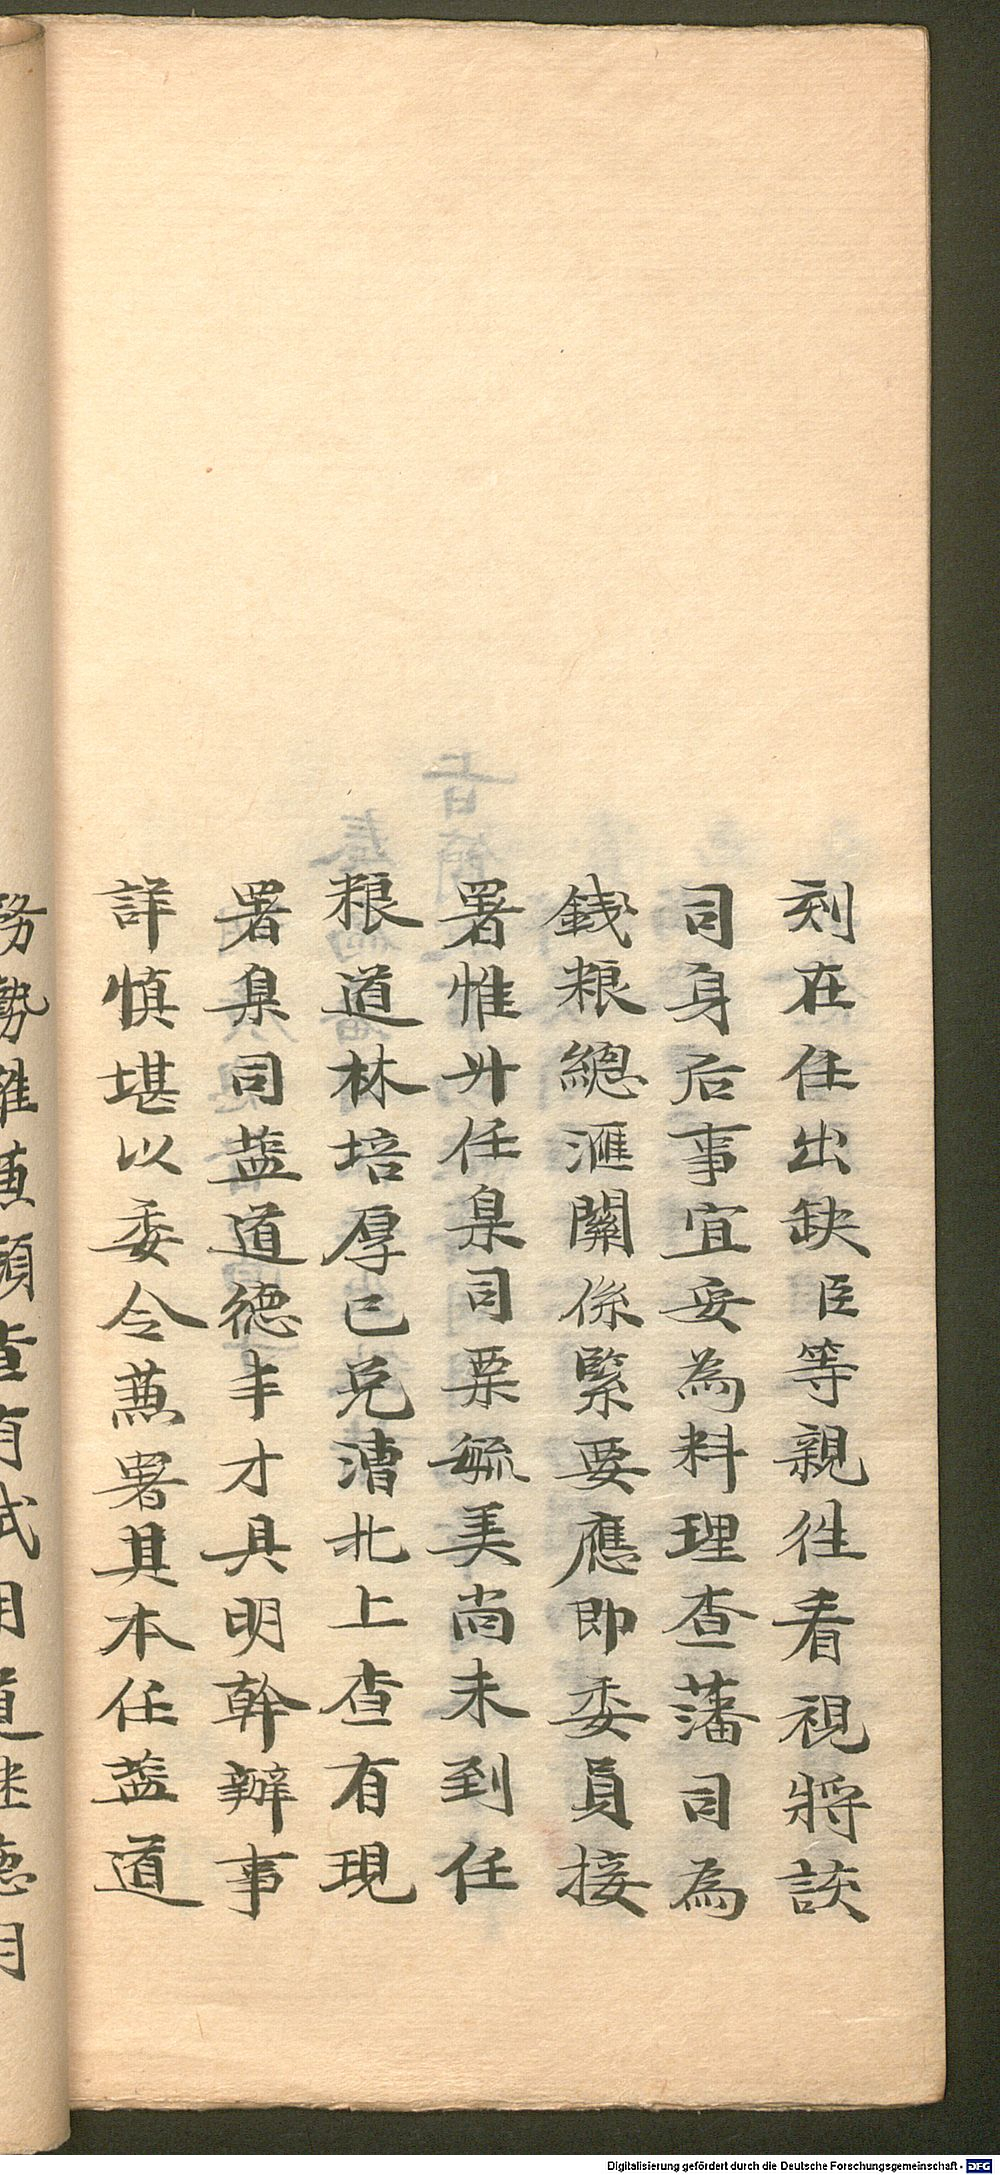 刻在任出缺臣等親徃看視將該
司身后事宜妥為料理查藩司為
錢粮總滙關係緊要應即委員接
署惟升任臬司栗毓美尚未到任
粮道林培厚已兌漕北上查有現
署臬司盐道德丰才具明幹辦事
詳慎堪以委令蕪署其本任盐道
Digitalisierung gefördert durch die Deutsche Forschungsgemeinschaft - DFG